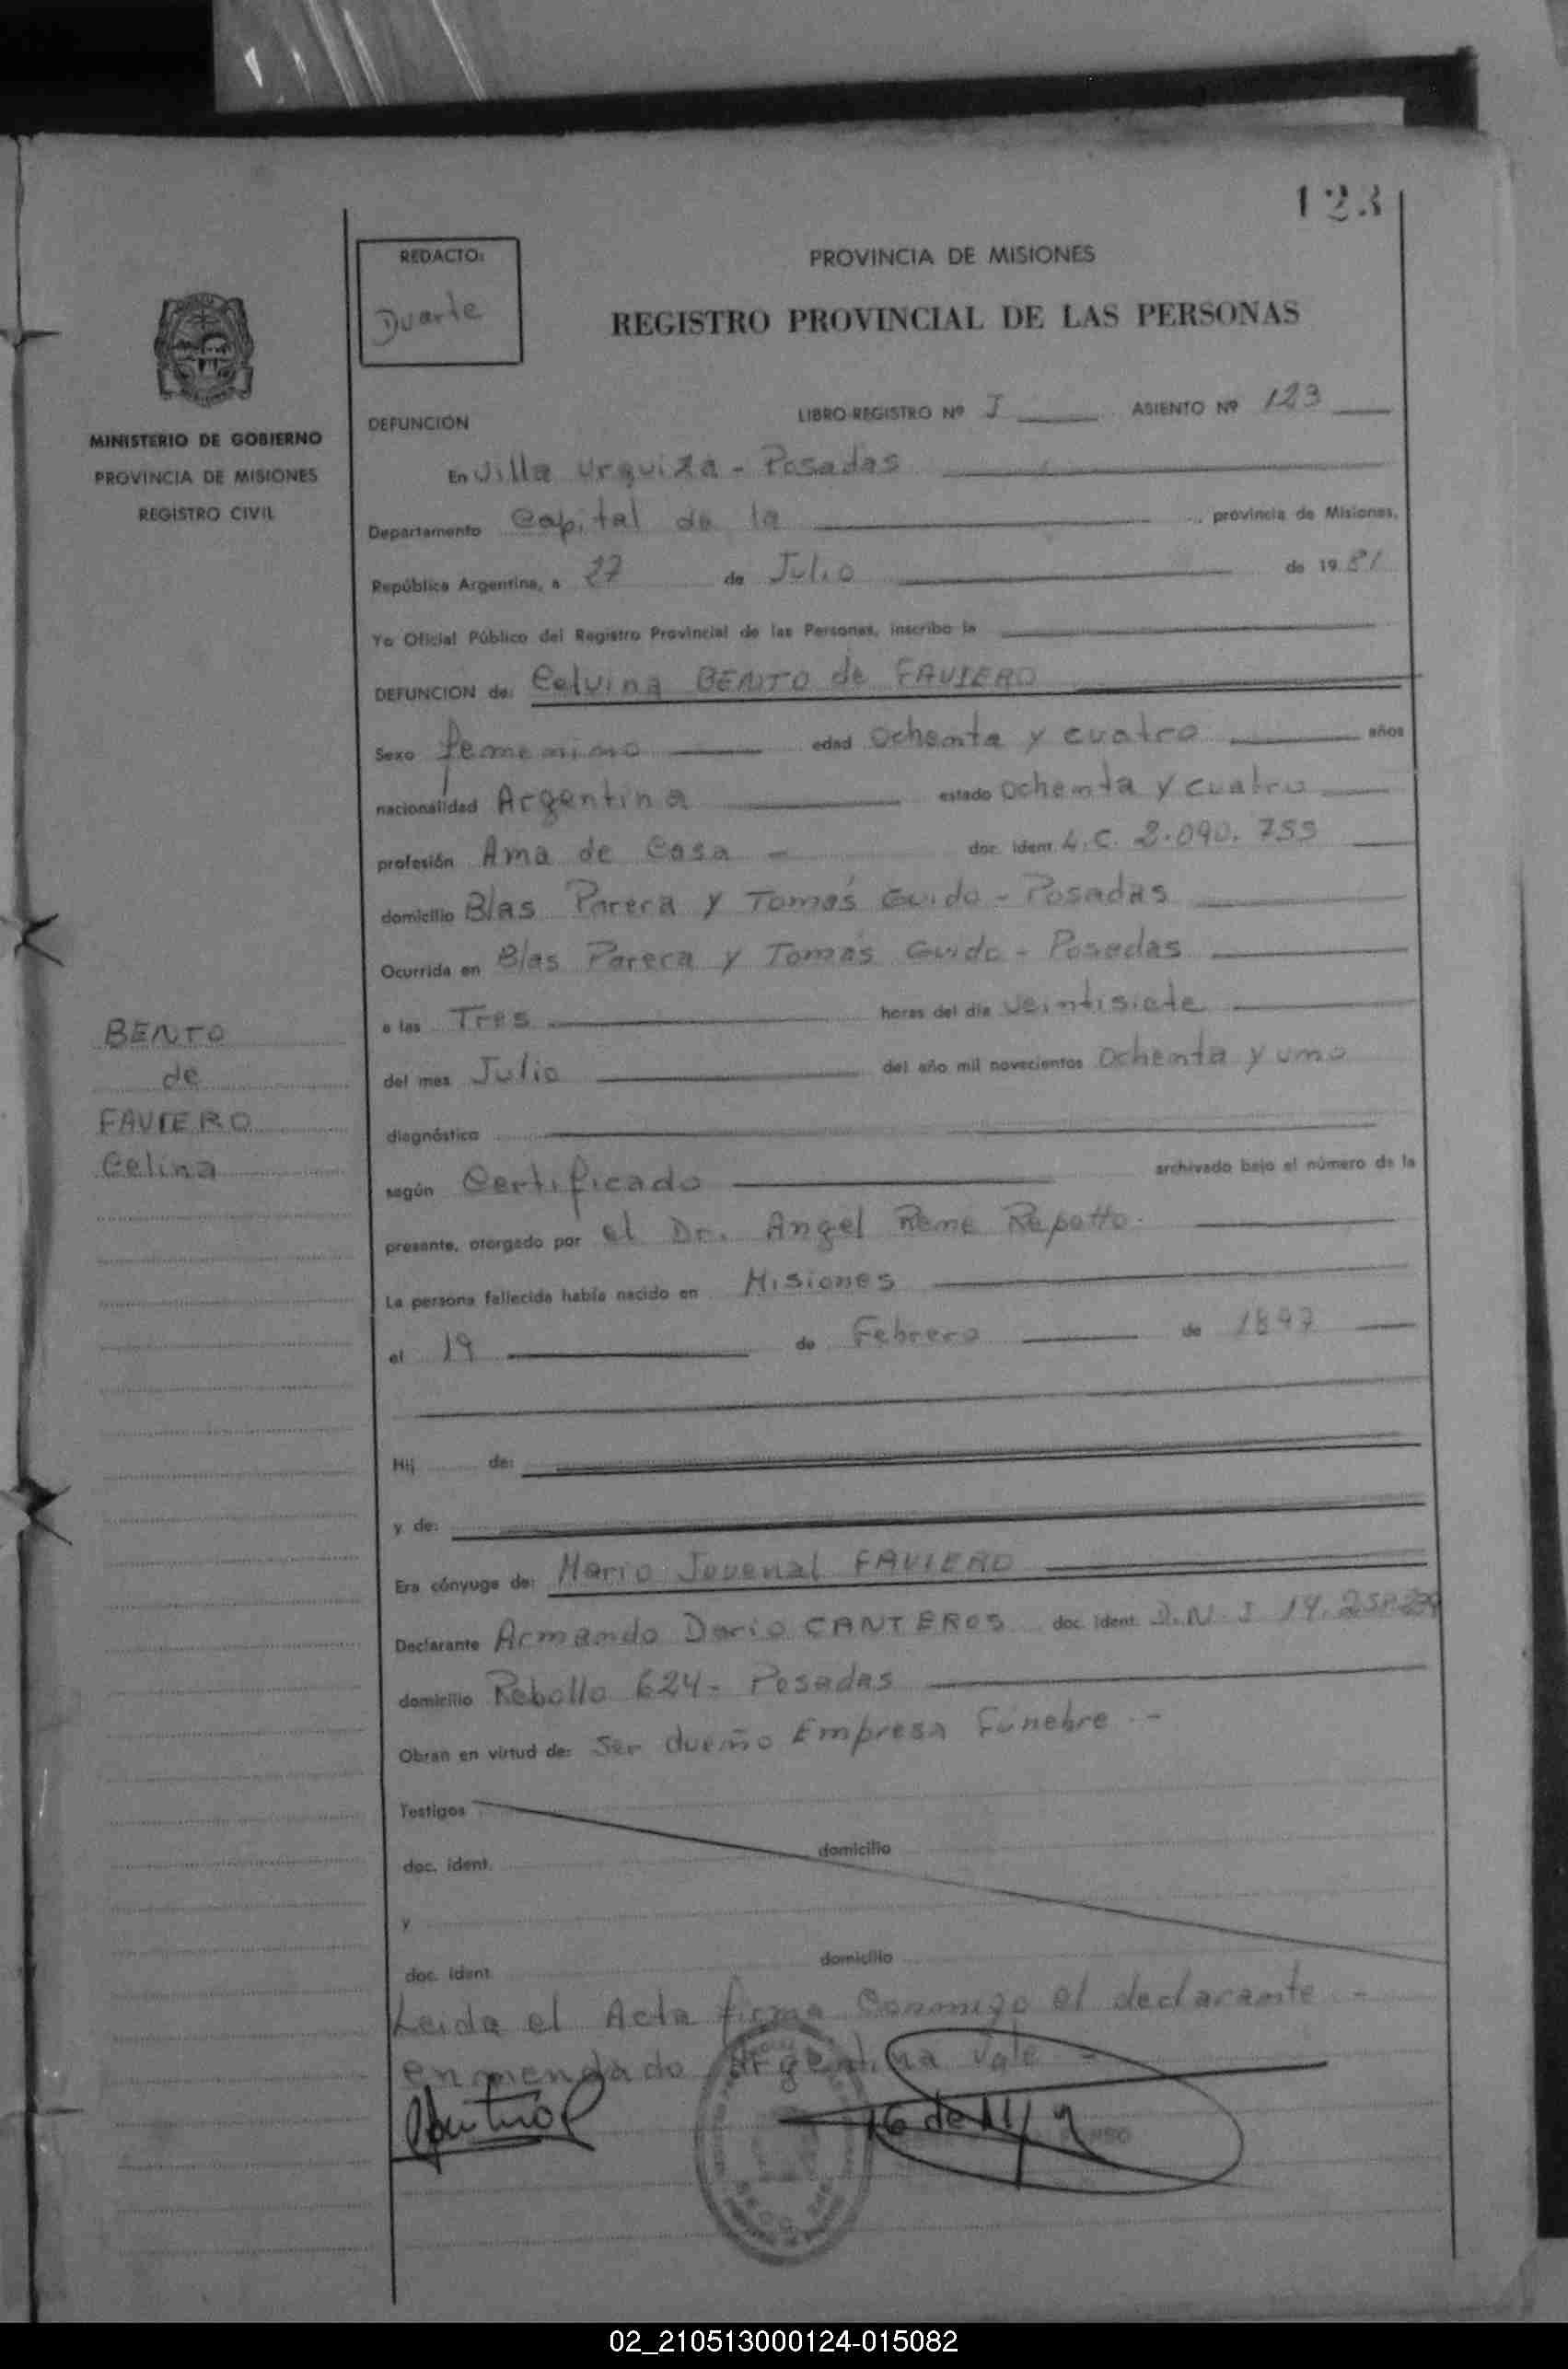 123
REDACTO:
Duarte
PROVINCIA DE MISIONES
REGISTRO PROVINCIAL DE LAS PERSONAS
MINISTERIO DE GOBIERNO
PROVINCIA DE MISIONES
REGISTRO CIVIL
DEFUNCION LIBRO-REGISTRO Nº I ASIENTO Nº 123
En Villa Urquiza - Posadas
Departamento Capital de la provincia de Misiones,
República Argentina, a 27 de Julio de 1981
Yo Oficial Público del Registro Provincial de las Personas, inscribo la
DEFUNCION de: Celvina BENTO de FAVIERO
Sexo femenino edad Ochenta y cuatro años
nacionalidad Argentina estado Ochenta y cuatro
profesión Ama de Casa - doc. ident. L.C. 2.090.755
domicilio Blas Parera y Tomás Guido - Posadas
Ocurrida en Blas Parera y Tomás Guido - Posadas
a las Tres horas del día veintisiete
del mes Julio del año mil novecientos Ochenta y uno
diagnóstico
según Certificado archivado bajo el número de la
presente, otorgado por el Dr. Angel Rene Repetto.
La persona fallecida había nacido en Misiones
el 19 de Febrero de 1897
Hij de:
y de:
Era cónyuge de: Mario Juvenal FAVIERO
Declarante Armando Dario CANTEROS doc. ident. D.N.I 14.258.
domicilio Rebollo 624 - Posadas
Obran en virtud de: Ser dueño Empresa Fúnebre -
Testigos
doc. ident. domicilio
y
doc. ident. domicilio
Leida el Acta firma Conmigo el declarante -
enmendado Argentina Vale -
BENTO
de
FAVIERO
Celina
02_210513000124-015082